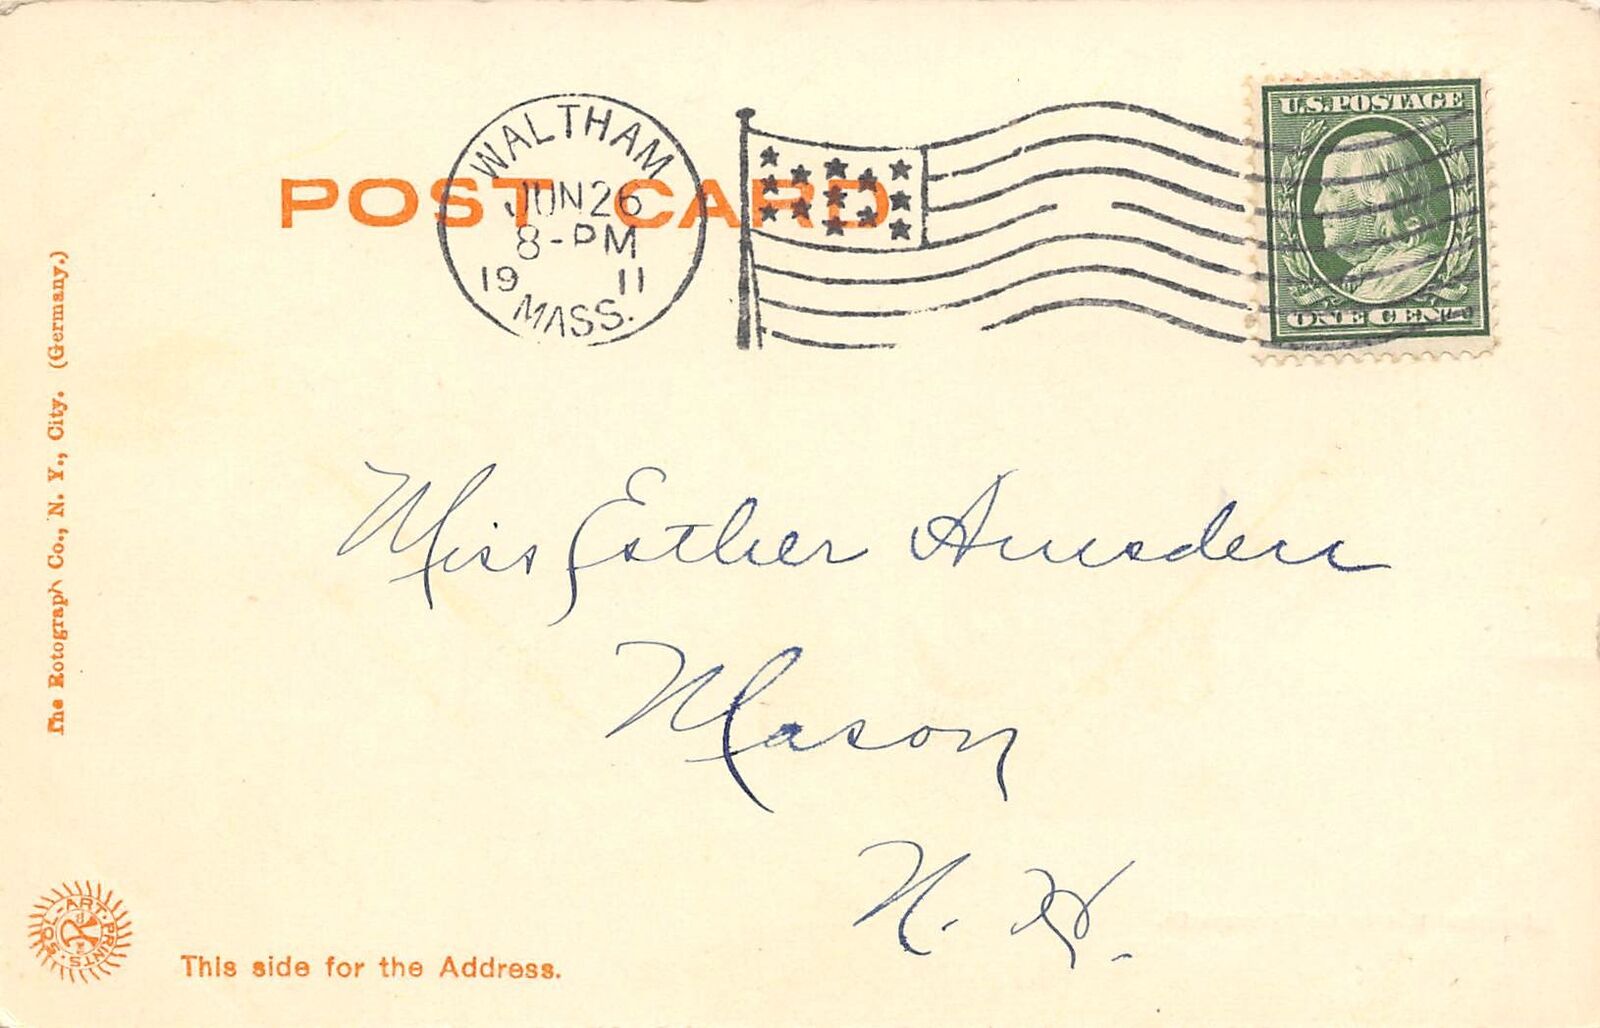 WALTHAM
JUN 26
8-PM
1911
MASS.
U.S. POSTAGE
ONE CENT
POST CARD
Miss Esther Amsden
Mason
N. H.
The Rotograph Co., N. Y., City. (Germany.)
SOL-ART PRINTS
This side for the Address.